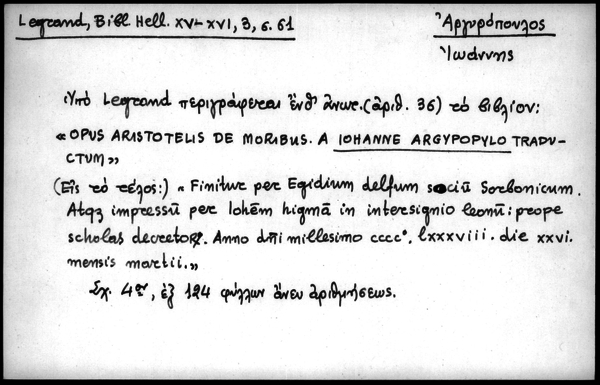 Legrand, Bibl. Hell. XV-XVI, 3, σ. 61
Ἀργυρόπουλος
Ἰωάννης
Ὑπὸ Legrand περιγράφεται ἔνθ' ἀνωτ. (ἀριθ. 36) τὸ βιβλίον:
« OPUS ARISTOTELIS DE MORIBUS. A IOHANNE ARGYPOPYLO TRADU-
CTUM »
(Εἰς τὸ τέλος:) « Finitur per Egidium delfum sociū Sorbonicum.
Atqꝫ impressū per Iohēm higmā in intersignio leonū: prope
scholas decretoꝝ. Anno dñi millesimo cccc°. lxxxviii. die xxvi.
mensis martii. »
Σχ. 4ον, ἐξ 124 φύλλων ἄνευ ἀριθμήσεως.